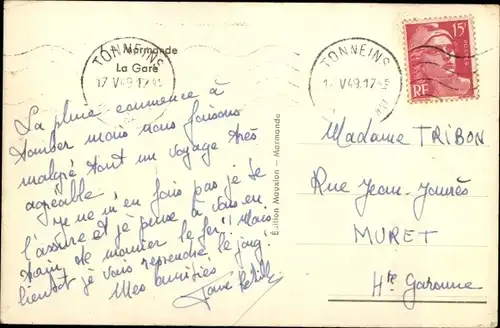 Marmande
La Gare
TONNEINS
17 V 49.17 45
TONNEINS
V 49.17 45
15F
POSTES
RF
La pluie commence à
tomber mais nous faisons
malgré tout un voyage très
agréable
Je ne m'en fais pas je te
l'assure et je pense à vous en
train de manier le fer!! Mais
bientôt je vais reprendre le joug!
Mes amitiés
Édition Mauxion - Marmande
Madame TRIBON
Rue Jean-Jaurès
MURET
Hte Garonne